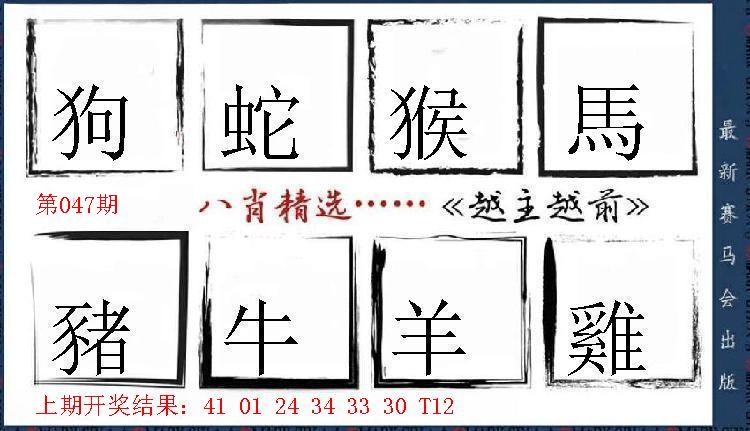 狗 蛇 猴 馬
第047期 八肖精选…… 《越主越前》
豬 牛 羊 雞
上期开奖结果: 41 01 24 34 33 30 T12
最新赛马会出版